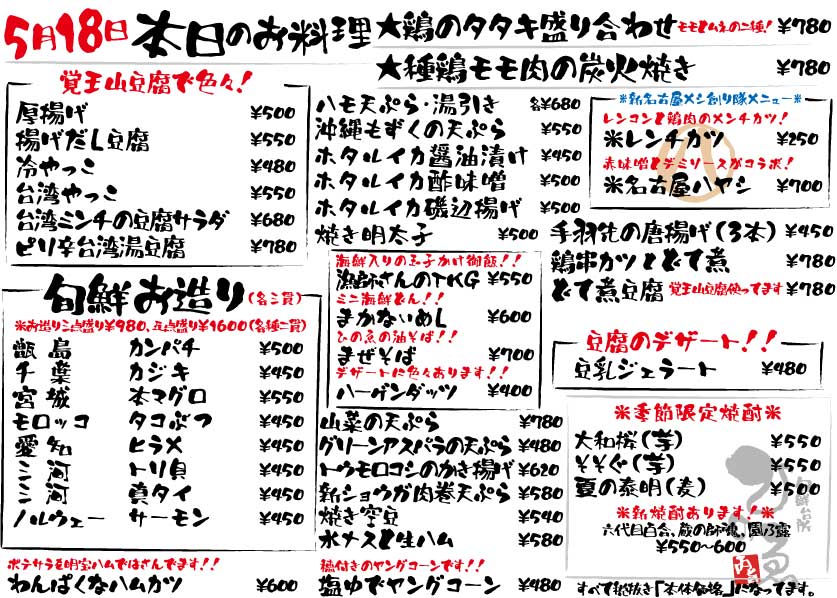 5月18日 本日のお料理
★鶏のタタキ盛り合わせ モモとムネの二種! ¥780
★種鶏モモ肉の炭火焼き ¥780
覚王山豆腐で色々!
厚揚げ ¥500
揚げだし豆腐 ¥550
冷やっこ ¥480
台湾やっこ ¥550
台湾ミンチの豆腐サラダ ¥680
ピリ辛台湾湯豆腐 ¥780
旬鮮お造り(各三貫)
※お造り三点盛り¥980、五点盛り¥1600(各種二貫)
甑島 カンパチ ¥500
千葉 カジキ ¥450
宮城 本マグロ ¥550
モロッコ タコぶつ ¥450
愛知 ヒラメ ¥450
三河 トリ貝 ¥450
三河 真タイ ¥450
ノルウェー サーモン ¥450
ポテサラを明宝ハムではさんでます!!
わんぱくなハムカツ ¥600
ハモ天ぷら・湯引き 各¥680
沖縄もずくの天ぷら ¥550
ホタルイカ醤油漬け ¥450
ホタルイカ酢味噌 ¥500
ホタルイカ磯辺揚げ ¥500
焼き明太子 ¥500
海鮮入りの玉子かけ御飯!!
漁師さんのTKG ¥550
ミニ海鮮どん!!
まかないめし ¥600
ひの゛の油そば!!
まぜそば ¥700
デザートに色々あります!!
ハーゲンダッツ ¥400
山菜の天ぷら ¥780
グリーンアスパラの天ぷら ¥480
トウモロコシのかき揚げ ¥620
新ショウガ肉巻天ぷら ¥580
焼き空豆 ¥540
水ナスと生ハム ¥580
穂付きのヤングコーンです!!
塩ゆでヤングコーン ¥480
※新名古屋メシ創り隊メニュー※
レンコンと鶏肉のメンチカツ!
※レンチカツ ¥250
赤味噌とデミソースがコラボ!
※名古屋ハヤシ ¥700
手羽先の唐揚げ(3本) ¥450
鶏串カツとどて煮 ¥780
どて煮豆腐 覚王山豆腐使ってます ¥780
豆腐のデザート!!
豆乳ジェラート ¥480
※季節限定焼酎※
大和桜(芋) ¥550
そそぐ(芋) ¥550
夏の泰明(麦) ¥500
※新焼酎あります!※
六代目百合、蔵の師魂、園乃露
¥550~600
旬鮮台所
すべて税抜き「本体価格」になってます。